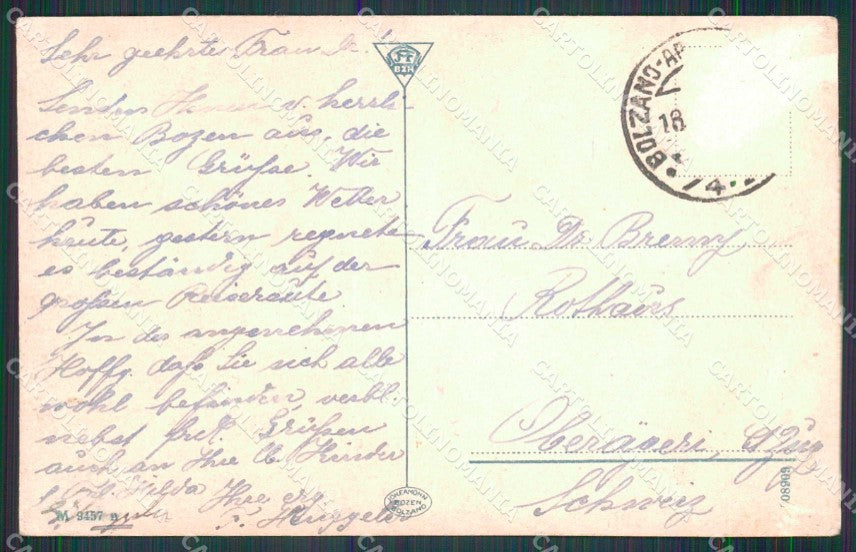 Sehr geehrte Frau Dr.!
Senden Ihnen v. herrli-
chen Bozen aus, die
besten Grüße. Wir
haben schönes Wetter
heute, gestern regnete
es beständig auf der
großen Reiseroute.
In der angenehmen
Hoffg. daß Sie sich alle
wohl befinden, verbl.
nebst frdl. Grüßen
auch an Ihre lb. Kinder
Hilda Ihre erg.
Huggeler
M 9457 n
BZN
JOH. AMONN
BOZEN
BOLZANO
BOLZANO
18
74
Frau Dr. Bremy
Rothaus
Oberägeri, Zug
Schweiz
08909
CARTOLINOMANIA